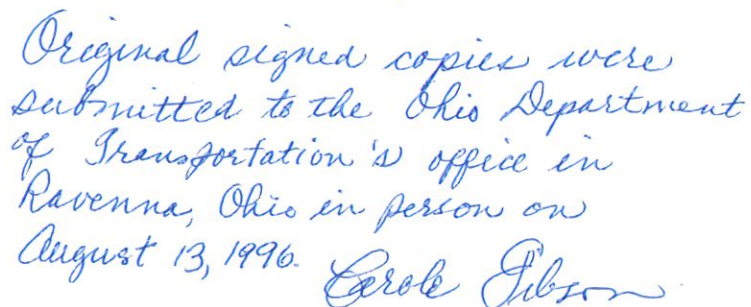 Original signed copies were
submitted to the Ohio Department
of Transportation's office in
Ravenna, Ohio in person on
August 13, 1996. Carole Gibson